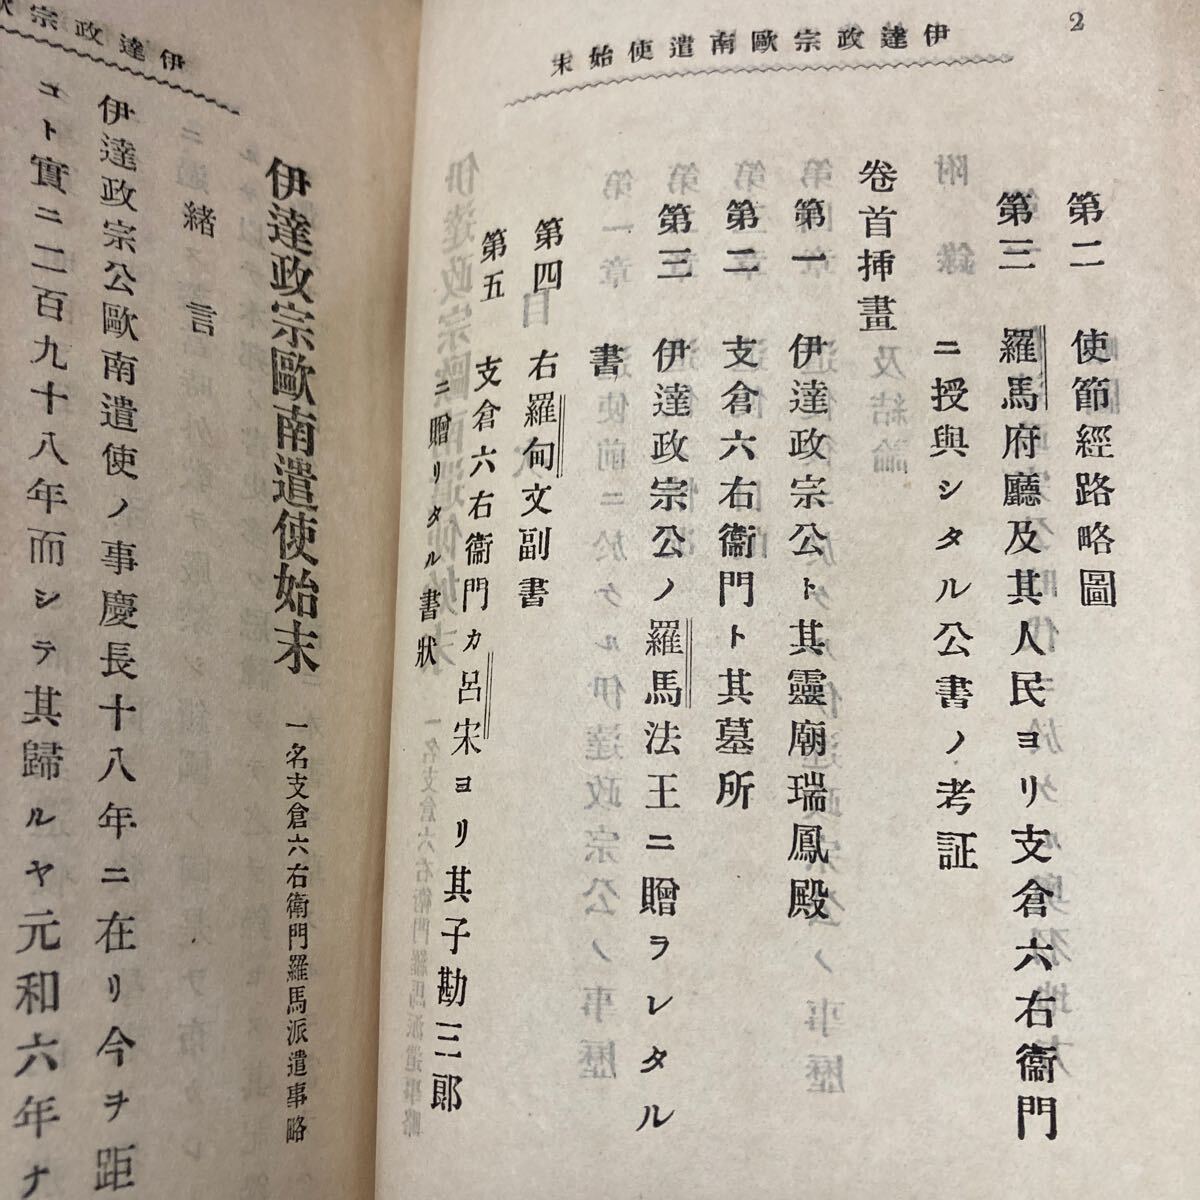 2
伊達政宗歐南遣使始末
第二　使節經路略圖
第三　羅馬府廳及其人民ヨリ支倉六右衞門
ニ授與シタル公書ノ考証
卷首挿畫
第一　伊達政宗公ト其靈廟瑞鳳殿
第二　支倉六右衞門ト其墓所
第三　伊達政宗公ノ羅馬法王ニ贈ラレタル
書
第四　右羅甸文副書
第五　支倉六右衞門カ呂宋ヨリ其子勘三郎
ニ贈リタル書狀
伊達政宗歐
伊達政宗歐南遣使始末　一名支倉六右衞門羅馬派遣事略
緒言
伊達政宗公歐南遣使ノ事慶長十八年ニ在リ今ヲ距
コト實ニ二百九十八年而シテ其歸ルヤ元和六年ナ